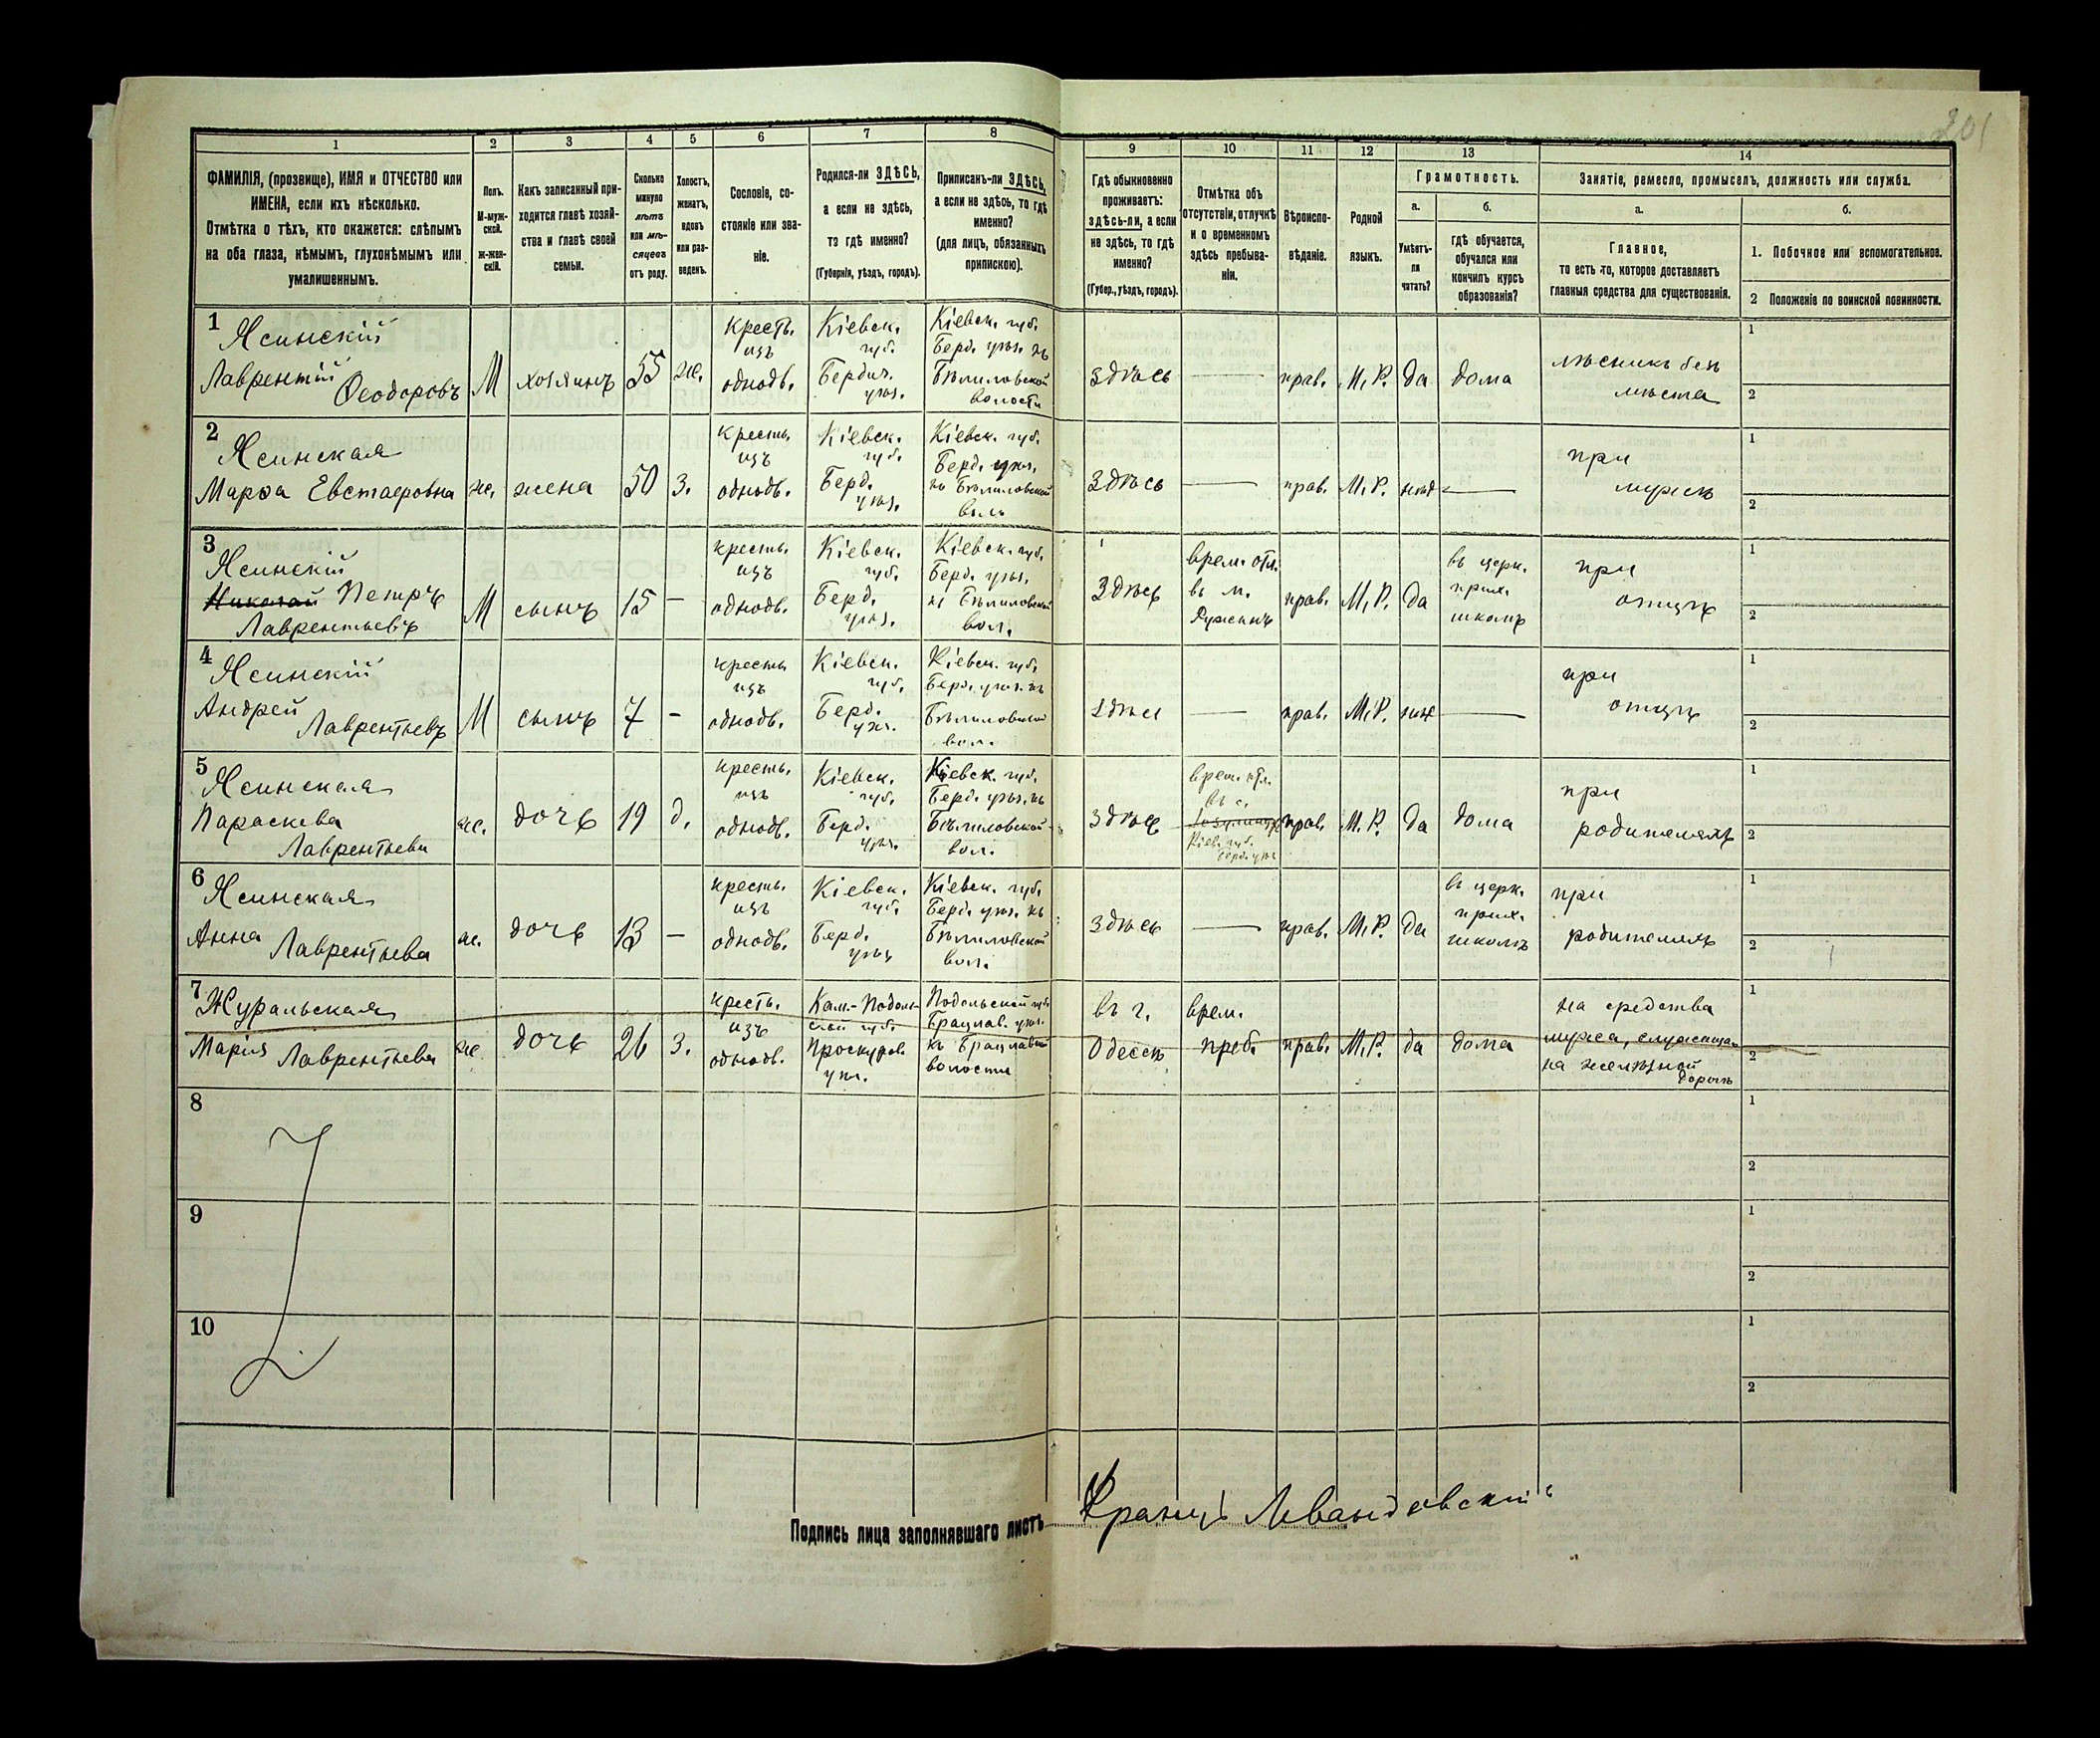 201
1
2
3
4
5
6
7
8
9
10
11
12
13
14
ФАМИЛІЯ, (прозвище), ИМЯ и ОТЧЕСТВО или
ИМЕНА, если ихъ нѣсколько.
Отмѣтка о тѣхъ, кто окажется: слѣпымъ
на оба глаза, нѣмымъ, глухонѣмымъ или
умалишеннымъ.
Полъ.
М-муж-
ской.
Ж-жен-
скій.
Какъ записанный при-
ходится главѣ хозяй-
ства и главѣ своей
семьи.
Сколько
минуло
лѣтъ
или мѣ-
сяцевъ
отъ роду.
Холостъ,
женатъ,
вдовъ
или раз-
веденъ.
Сословіе, со-
стояніе или зва-
ніе.
Родился-ли ЗДѢСЬ,
а если не здѣсь,
то гдѣ именно?
(Губернія, уѣздъ, городъ).
Приписанъ-ли ЗДѢСЬ,
а если не здѣсь, то гдѣ
именно?
(для лицъ, обязанныхъ
припискою).
Гдѣ обыкновенно
проживаетъ:
здѣсь-ли, а если
не здѣсь, то гдѣ
именно?
(Губер., уѣздъ, городъ).
Отмѣтка объ
отсутствіи, отлучкѣ
и о временномъ
здѣсь пребыва-
ніи.
Вѣроиспо-
вѣданіе.
Родной
языкъ.
Грамотность.
а.
Умѣетъ-
ли
читать?
б.
гдѣ обучается,
обучался или
кончилъ курсъ
образованія?
Занятіе, ремесло, промыселъ, должность или служба.
а.
Главное,
то есть то, которое доставляетъ
главныя средства для существованія.
б.
1. Побочное или вспомогательное.
2 Положеніе по воинской повинности.
1
Ясинскій
Лаврентій
Ѳеодоровъ
М
хозяинъ
55
же.
крестъ.
изъ
однодв.
Кіевск.
губ.
Бердич.
уѣз.
Кіевск. губ.
Берд. уѣз. къ
Бѣлиловской
волости
здѣсь
прав.
М. Р.
да
дома
лѣсникъ безъ
мѣста
1
2
2
Ясинская
Марѳа Евстафровна
же.
жена
50
з.
крестъ.
изъ
однодв.
Кіевск.
губ.
Берд.
уѣз.
Кіевск. губ.
Берд. уѣз.
къ Бѣлиловской
вол.
здѣсь
прав.
М. Р.
при
мужѣ
1
2
3
Ясинскій
Николай Петръ
Лаврентьевъ
М
сынъ
15
кресть.
изъ
однодв.
Кіевск.
губ.
Берд.
уѣз.
Кіевск. губ.
Берд. уѣз.
къ Бѣлиловской
вол.
Здѣсь
врем. отл.
въ м.
Ружинъ
прав.
М. Р.
да
въ церк.
прих.
школѣ
при
отцѣ
1
2
4
Ясинскій
Андрей
Лаврентьевъ
М
сынъ
7
кресть
изъ
однодв.
Кіевск.
губ.
Берд.
уѣз.
Кіевск. губ.
Берд. уѣз. къ
Бѣлиловской
вол.
здѣсь
прав.
М. Р.
при
отцѣ
1
2
5
Ясинская
Параскева
Лаврентьева
же.
дочь
19
д.
кресть.
изъ
однодв.
Кіевск.
губ.
Берд.
уѣз.
Кіевск. губ.
Берд. уѣз. къ
Бѣлиловской
вол.
здѣсь
врем. отл.
въ с.
Кіев. губ.
Берд. уѣз
прав.
М. Р.
да
дома
при
родителяхъ
1
2
6
Ясинская
Анна
Лаврентьева
же.
дочь
13
кресть.
изъ
однодв.
Кіевск.
губ.
Берд.
уѣз
Кіевск. губ.
Берд. уѣз. къ
Бѣлиловской
вол.
здѣсь
прав.
М. Р.
да
въ церк.
прих.
школѣ
при
родителяхъ
1
2
7
Журальская
Марія Лаврентьева
же.
дочь
26
з.
кресть.
изъ
однодв.
Кам.-Подоль-
ской губ.
Проскуров.
уѣз.
Подольской губ.
Брацлав. уѣз.
къ Брацлавской
волости
въ г.
Одессѣ
врем.
преб.
прав.
М. Р.
да
дома
на средства
мужа, служащаго
на желѣзной
дорогѣ
1
2
8
1
2
9
1
2
10
1
2
Подпись лица заполнявшаго листъ
Францъ Левандовскій